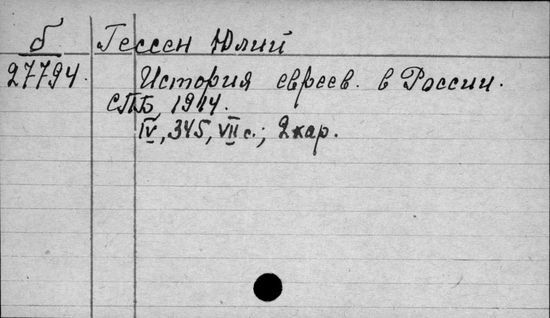 б Гессен Юлий
27794. История евреев. в России.
СПБ 1914.
IV, 345, VII с.; 2 кар.